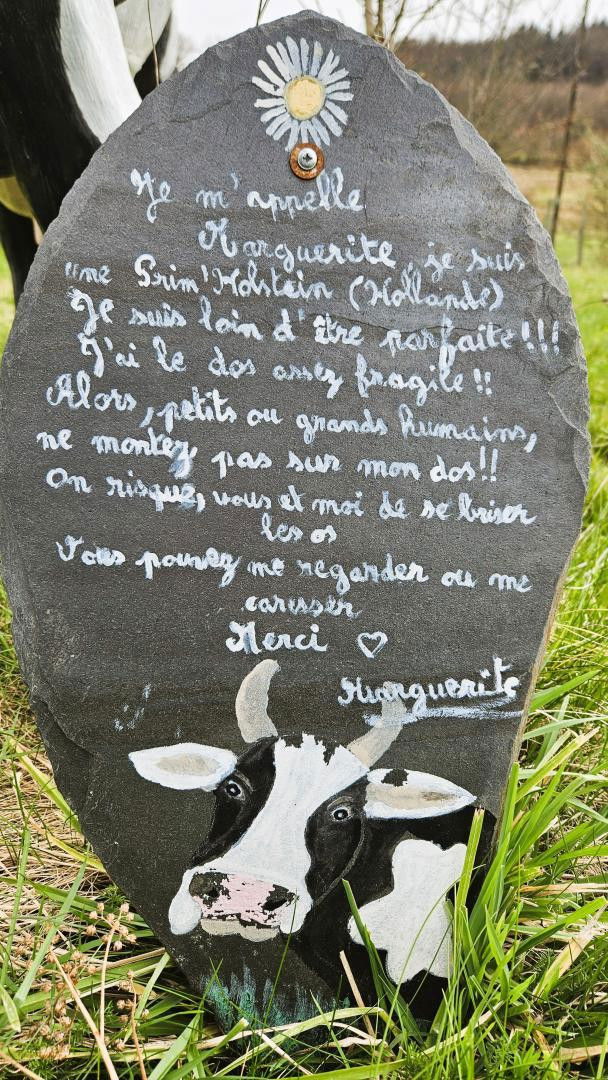 Je m'appelle
Marguerite, je suis
une Prim'Holstein (Hollande)
Je suis loin d'être parfaite!!!
J'ai le dos assez fragile!!
Alors, petits ou grands humains,
ne montez pas sur mon dos!!
On risque, vous et moi de se briser
les os
Vous pouvez me regarder ou me
caresser
Merci ♡
Marguerite